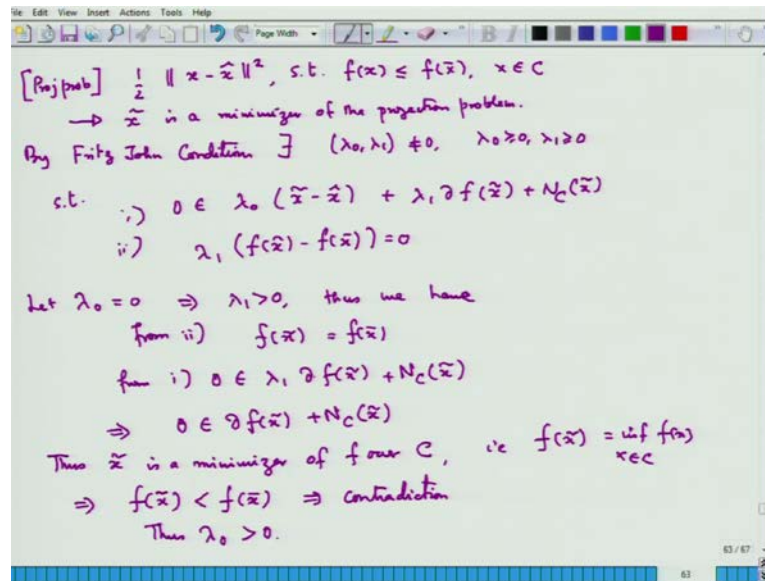 File Edit View Insert Actions Tools Help
Page Width
[Proj prob] 1/2 ‖ x - x̂ ‖², s.t. f(x) ≤ f(x̄), x ∈ C
→ x̃ is a minimizer of the projection problem.
By Fritz John Condition ∃ (λ₀, λ₁) ≠ 0, λ₀ ≥ 0, λ₁ ≥ 0
s.t. i) 0 ∈ λ₀ (x̃ - x̂) + λ₁ ∂f(x̃) + N_C(x̃)
ii) λ₁ (f(x̃) - f(x̄)) = 0
Let λ₀ = 0 ⇒ λ₁ > 0, thus we have
from ii) f(x̃) = f(x̄)
from i) 0 ∈ λ₁ ∂f(x̃) + N_C(x̃)
⇒ 0 ∈ ∂f(x̃) + N_C(x̃)
Thus x̃ is a minimizer of f over C, i.e. f(x̃) = inf f(x)
x ∈ C
⇒ f(x̃) < f(x̄) ⇒ contradiction
Thus λ₀ > 0.
63 / 67
63